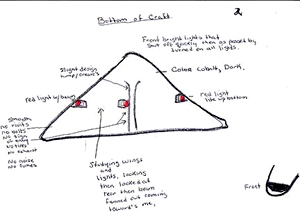 Bottom of Craft
2
Front bright lights that
shut off quickly then as passed by
turned on all lights.
Slight design
bump/creases
Color Cobalt, Dark.
red light w/beam
red light
lite up bottom
smooth
no rivits
no bolts
no sign
of entry
no tires
no exhaust
no noise
no fumes
Studying wings
and
lights, looking
then looked at
rear then beam
fanned out coming
toward's me,
Front